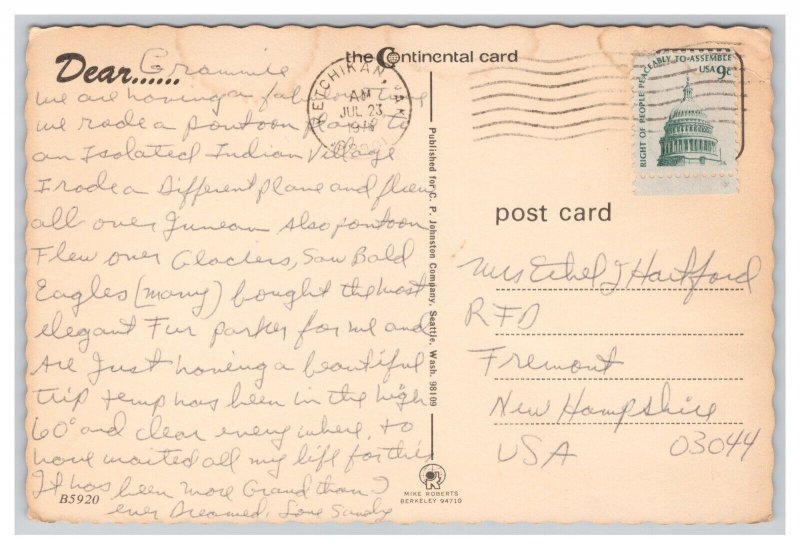 the Continental card
Dear...... Grammie
we are having a fabulous time
we rode a pontoon plane to
an Isolated Indian Village
I rode a Different plane and flew
all over Juneau also pontoon
Flew over Glaciers, Saw Bald
Eagles (many) bought the most
elegant Fur parker for me and
are Just having a beautiful
trip temp has been in the high
60° and clear every where, to
have waited all my life for this
It has been more Grand than I
ever Dreamed. Love Sandy
B5920
KETCHIKAN, AK
AM
JUL 23
Published for C. P. Johnston Company, Seattle, Wash. 98109
MIKE ROBERTS
BERKELEY 94710
RIGHT OF PEOPLE PEACEABLY TO ASSEMBLE
USA 9c
post card
Mrs Ethel J Hartford
RFD
Fremont
New Hampshire
USA 03044